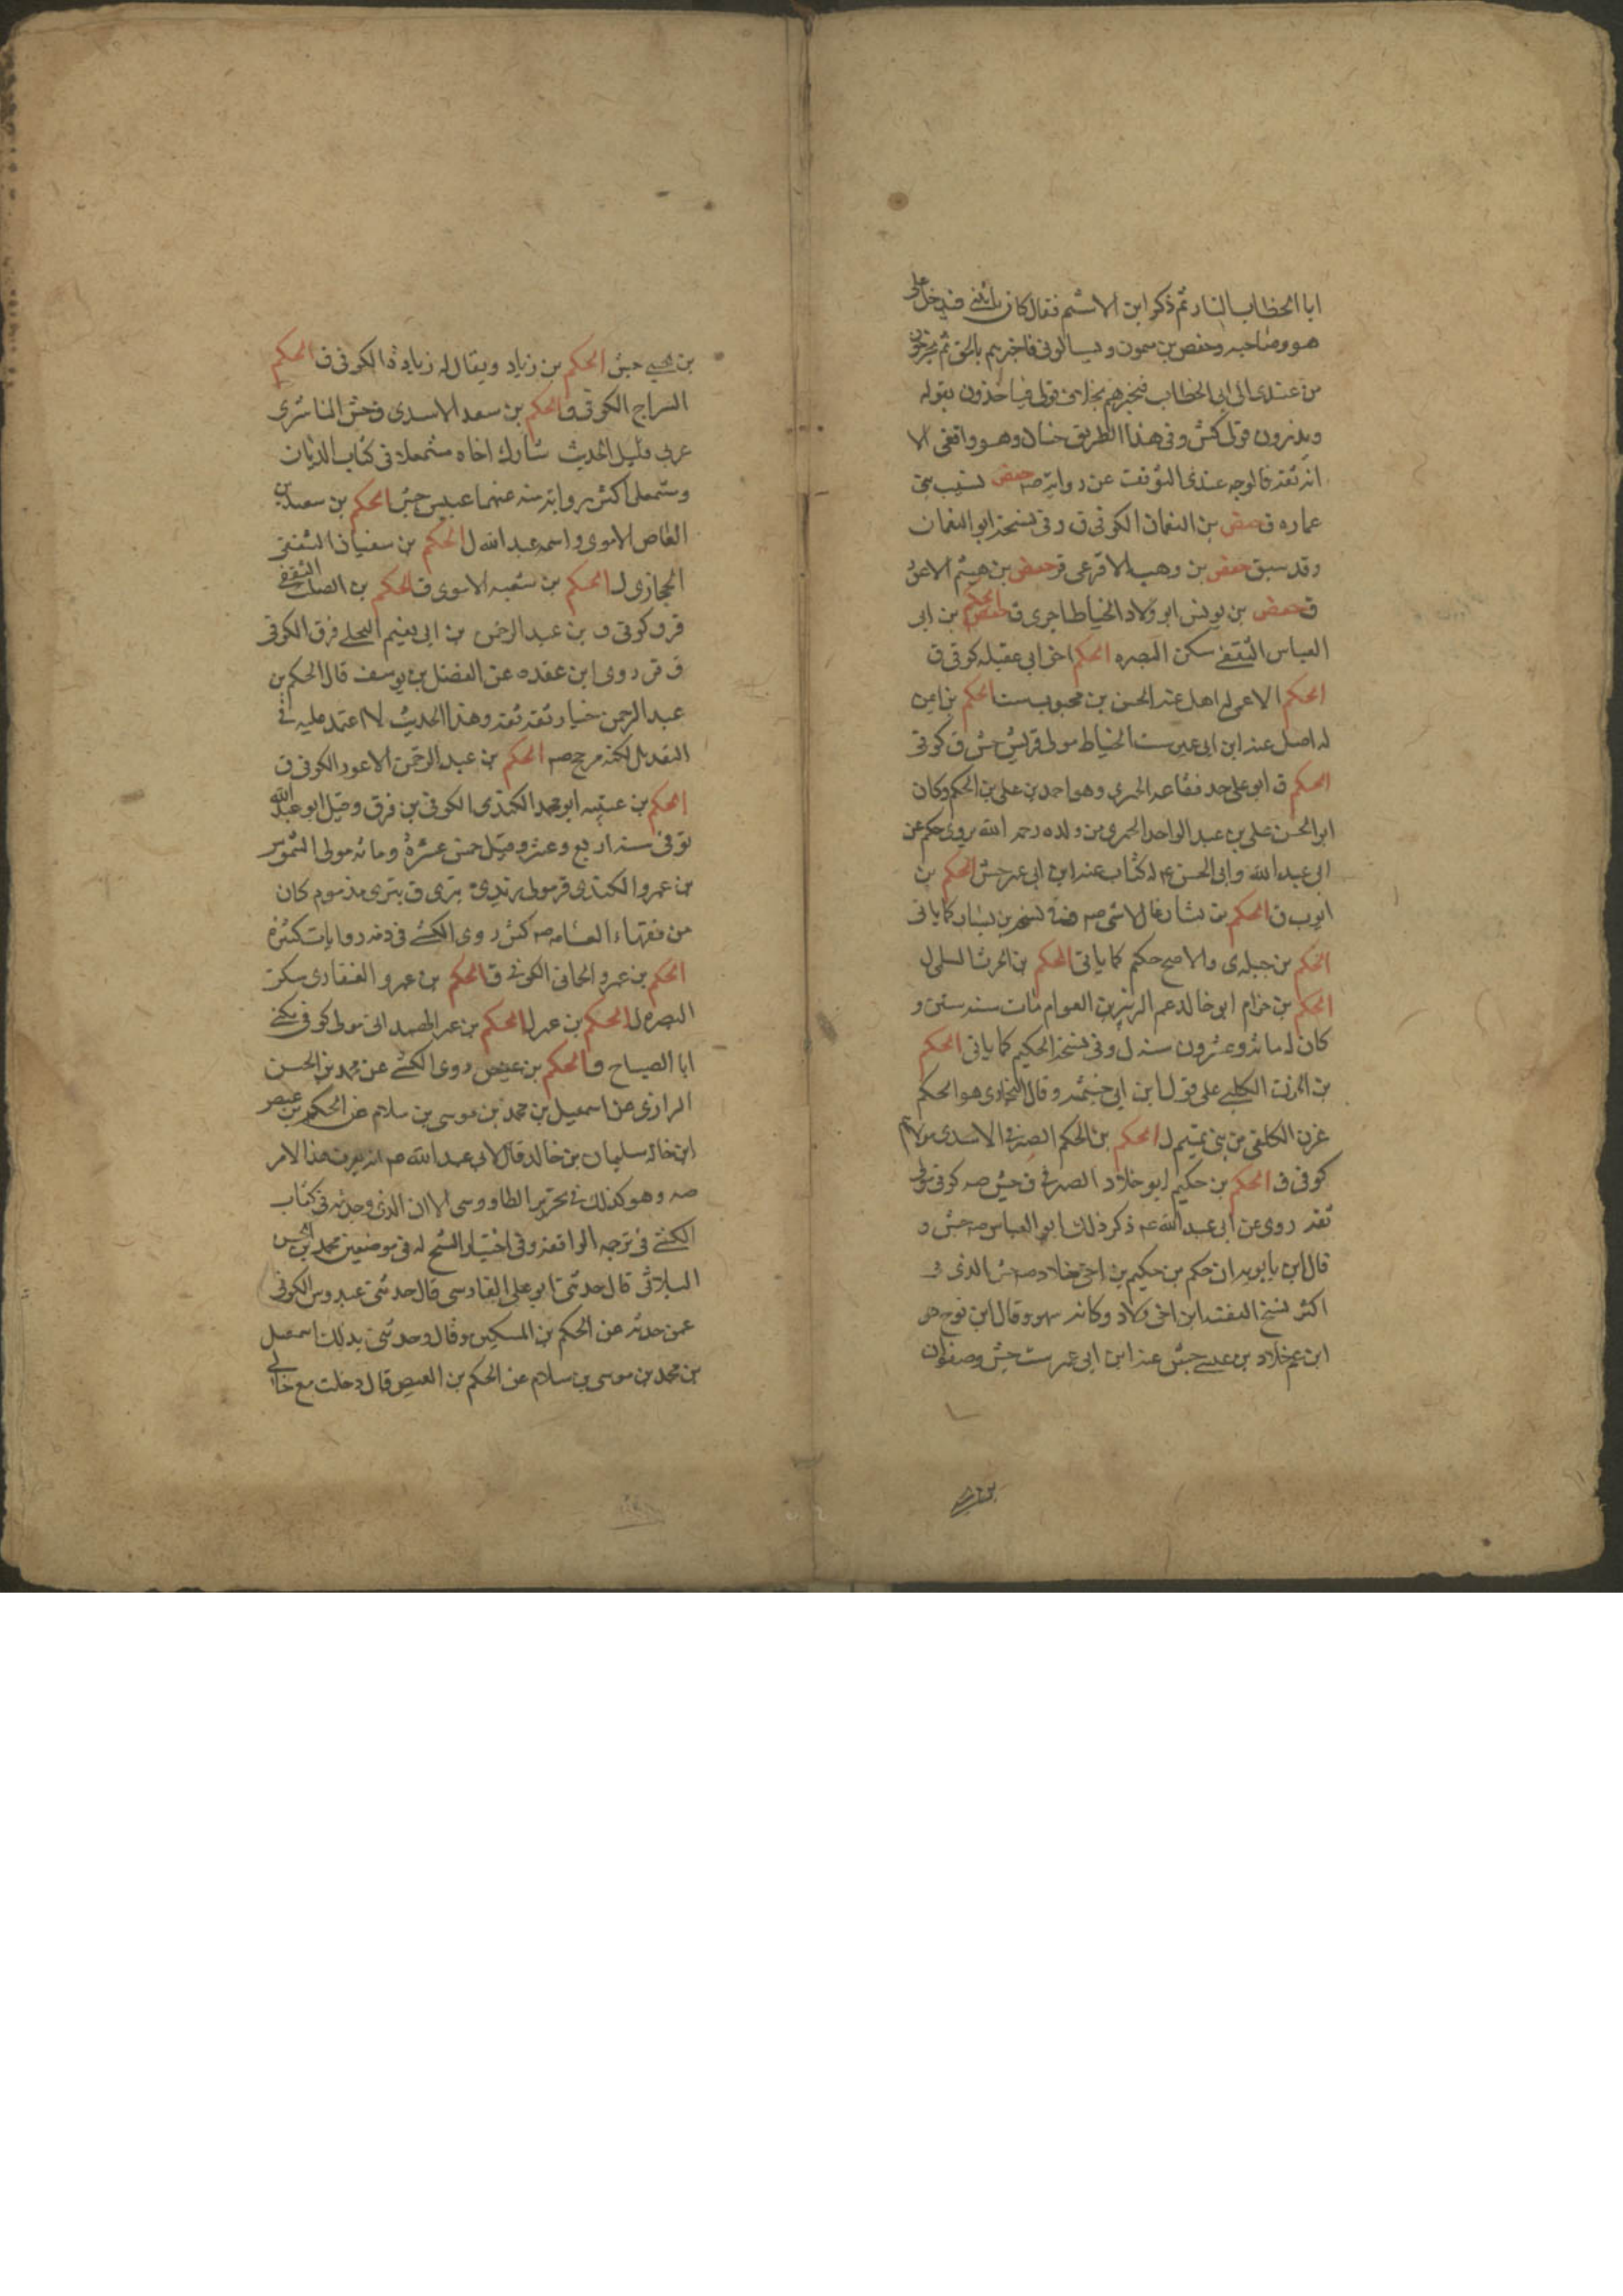 ابا الخطاب بالنار ثم ذكر ابن الاشيم فقال كان ياتينى فيدخل على
هو وصاحبه وحفص بن ميمون ويسالونى فاخبرهم بالحق ثم يخرجون
من عندى الى ابى الخطاب فيخبرهم بخلاف قولى فياخذون بقوله
ويذرون قولى كش وفى هذا الطريق حنان وهو واقفى الا
انه ثقة فالوجه عندى التوقف عن روايته صه حفص نسيب بنى
عماره ق حفص بن النعمان الكوفى ق وفى نسخة ابو النعمان
وقد سبق حفص بن وهب الاقرعى ق حفص بن هيثم الاعور
ق حفص بن يونس ابو ولاد الخياط اجرى ق الحكم بن ابى
العباس الثقفى سكن البصره الحكم اخى ابى عقيله كوفى ق
الحكم الاعمى له اصل عنه الحسن بن محبوب ست الحكم بن ايمن
له اصل عنه ابن ابى عمير ست الخياط مولى قريش جش ق كوفى
الحكم ق ابو على جد فقاعه الحميرى وهو احمد بن على بن الحكم وكان
ابو الحسن على بن عبد الواحد الحميرى من ولده رحمه الله يروى حكم عن
ابى عبد الله وابى الحسن ع له كتاب عنه ابن ابى عمير جش الحكم بن
ايوب ق الحكم بن بشار غال لا شى صه وفى نسخه بن يسار كما ياتى
الحكم بن جبله ى والاصح حكيم كما ياتى الحكم بن الحرث السلمى ل
الحكم بن حزام ابو خالد عم الزبير بن العوام مات سنه ستين و
كان له مائه وعشرون سنه ل وفى نسخة الحكيم كما ياتى الحكم
بن الحزن الكلبى على قول ابن ابى خيثمه وقال البخارى هو الحكم
بن حزن الكلفى من بنى تميم ل الحكم بن الحكم الصيرفى الاسدى مولاهم
كوفى ق الحكم بن حكيم ابو خلاد الصيرفى ق جش صه كوفى مولى
ثقه روى عن ابى عبد الله ع ذكر ذلك ابو العباس صه جش و
قال ابن بابويه ان حكم بن حكيم بن اخى خلاد صه الذى فى
اكثر نسخ الفقيه ابن اخى خلاد وكانه سهو وقال ابن نوح هو
ابن عم خلاد بن عيسى جش عنه ابن ابى عمير ست جش وصفوان
بن يحيى
بن يحيى جش الحكم بن زياد ويقال له زياد الكوفى ق الحكم
السراج الكوفى ق الحكم بن سعد الاسدى ق جش الناشرى
عربى قليل الحديث شارك اخاه مشمعلا فى كتاب الديات
ومشمعل اكثر رواية منه عنهما عبيس جش الحكم بن سعيد بن
العاص الاموى واسمه عبد الله ل الحكم بن سفيان الثقفى
الحجازى ل الحكم بن شعبه الاموى ق الحكم بن الصلت الثقفى
قر ق كوفى ق بن عبد الرحمن بن ابى نعيم البجلى قر ق الكوفى
ق قر روى ابن عقده عن الفضل بن يوسف قال الحكم بن
عبد الرحمن خيار ثقة ثقة وهذا الحديث لا اعتمد عليه فى
التعديل لكنه مرجح صه الحكم بن عبد الرحمن الاعور الكوفى ق
الحكم بن عتيبه ابو محمد الكندى الكوفى بن قر ق وقيل ابو عبد الله
توفى سنه اربع وعشر وقيل خمس عشرة ومائه مولى الشموس
بن عمرو الكندى قر مولى زيدى بترى ق بترى مذموم كان
من فقهاء العامه صه كش روى الكشى فى ذمه روايات كثيره
الحكم بن عمرو الحانى الكوفى ق الحكم بن عمرو الغفارى سكن
البصره ل الحكم بن عمير ل الحكم بن عمير الهمدانى مولى كوفى يكنى
ابا الصباح ق الحكم بن عيص روى الكشى عن محمد بن الحسن
الرازى عن اسمعيل بن محمد بن موسى بن سلام عن الحكم بن عيص
ابن خاله سليمان بن خالد قال لابى عبد الله ع انه يعرف هذا الامر
صه وهو كذلك فى تحرير الطاووسى الا ان الذى وجدته فى كتاب
الكشى فى ترجمه الواقفة وفى اختيار الشيخ له فى موضعين محمد بن الحسن
البراثى قال حدثنى ابو على الفارسى قال حدثنى عبدوس الكوفى
عمن حدثه عن الحكم بن المسكين وقال وحدثنى بذلك اسمعيل
بن محمد بن موسى بن سلام عن الحكم بن العيص قال دخلت مع خالى